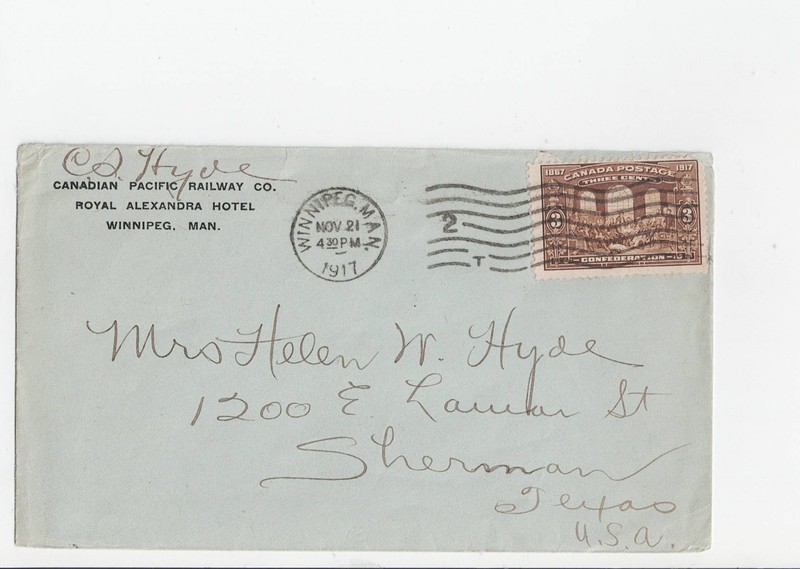 C.S. Hyde
CANADIAN PACIFIC RAILWAY CO.
ROYAL ALEXANDRA HOTEL
WINNIPEG, MAN.
WINNIPEG, MAN.
NOV 21
4 30 PM
1917
2
T
1867 CANADA POSTAGE 1917
THREE CENTS
3 3
CONFEDERATION
Mrs Helen W. Hyde
1200 E. Lamar St
Sherman
Texas
U.S.A.